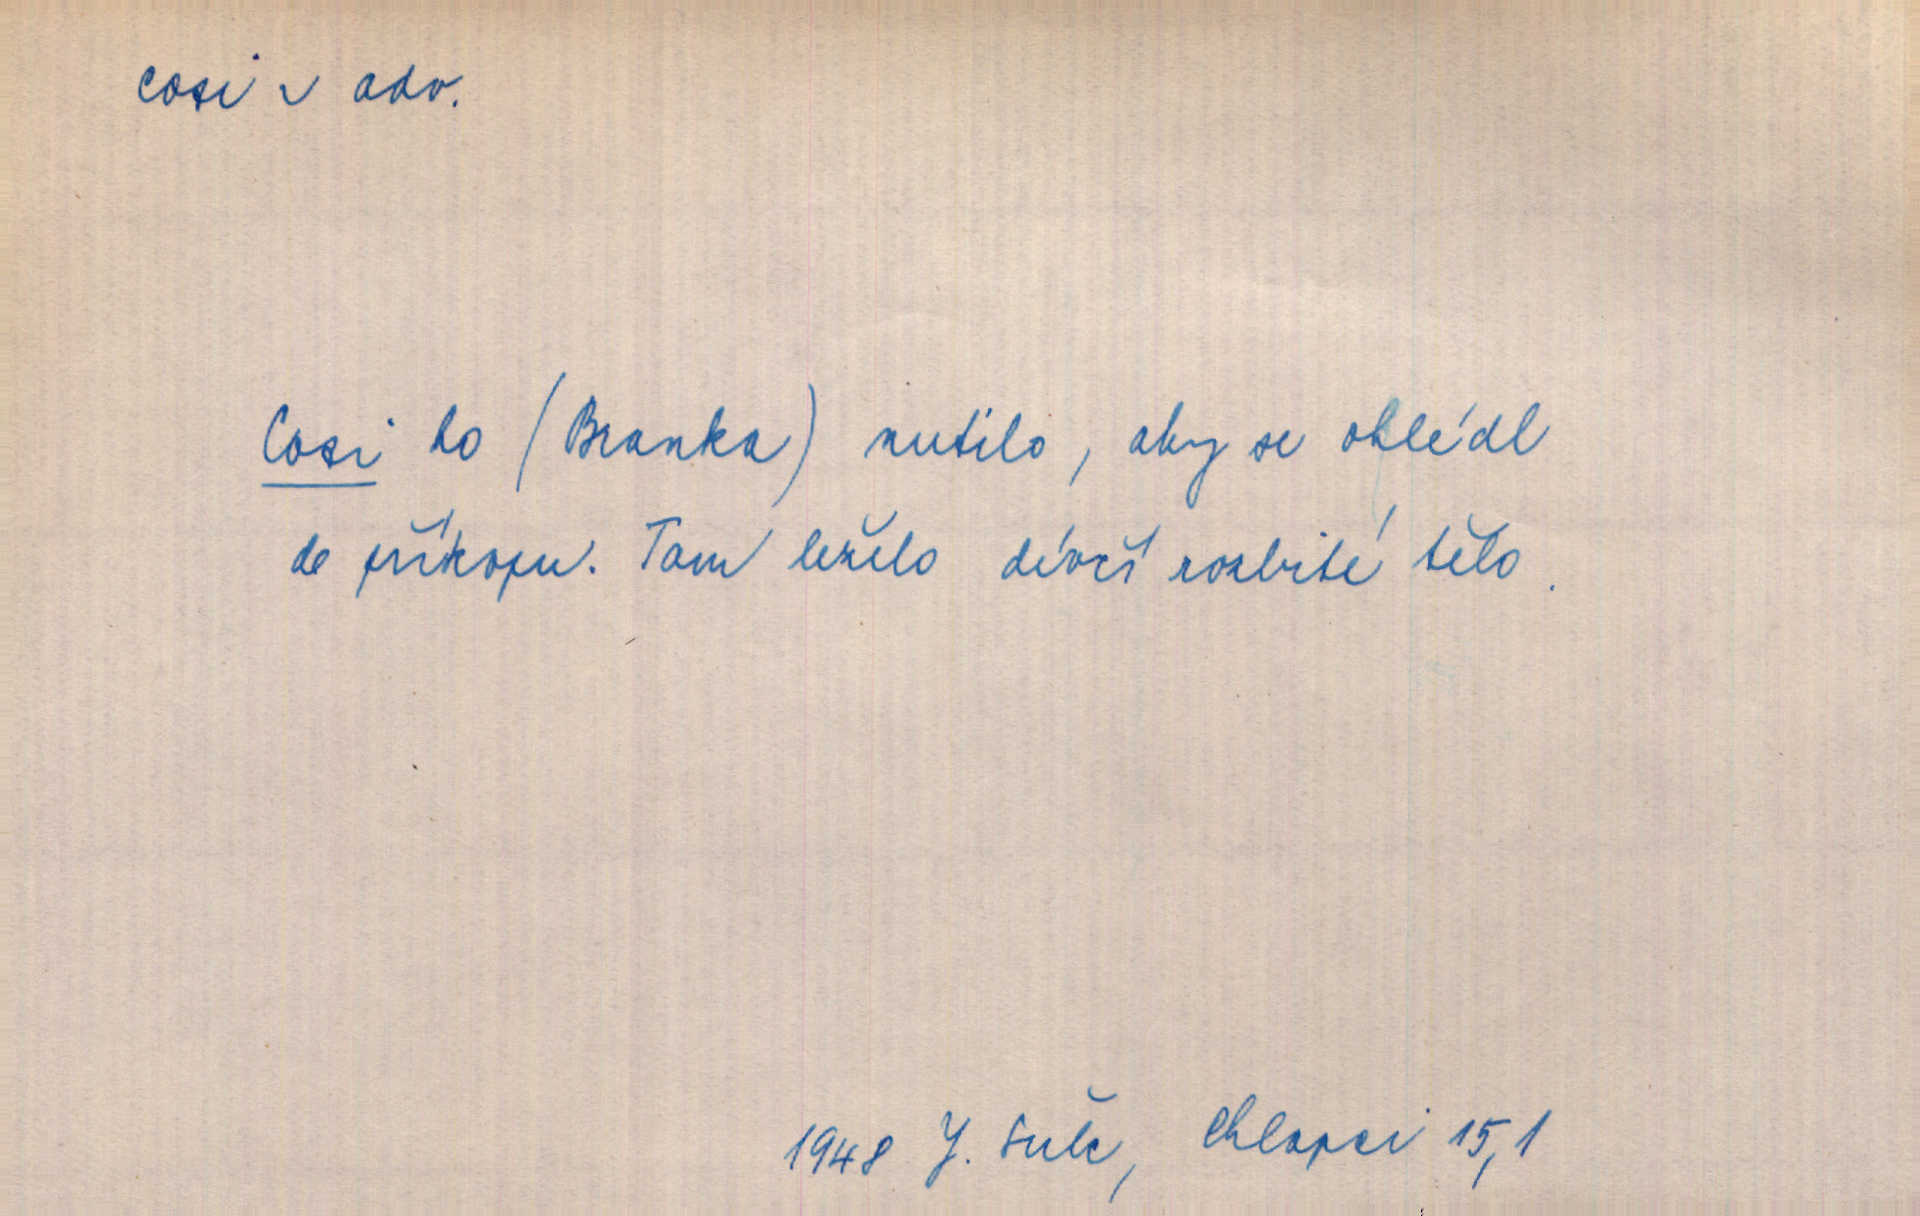 cosi v adv.
Cosi ho (Branka) nutilo, aby se ohlédl
do příkopu. Tam leželo dívčí rozbité tělo.
1948 J. Šulc, Chlapci 15,1